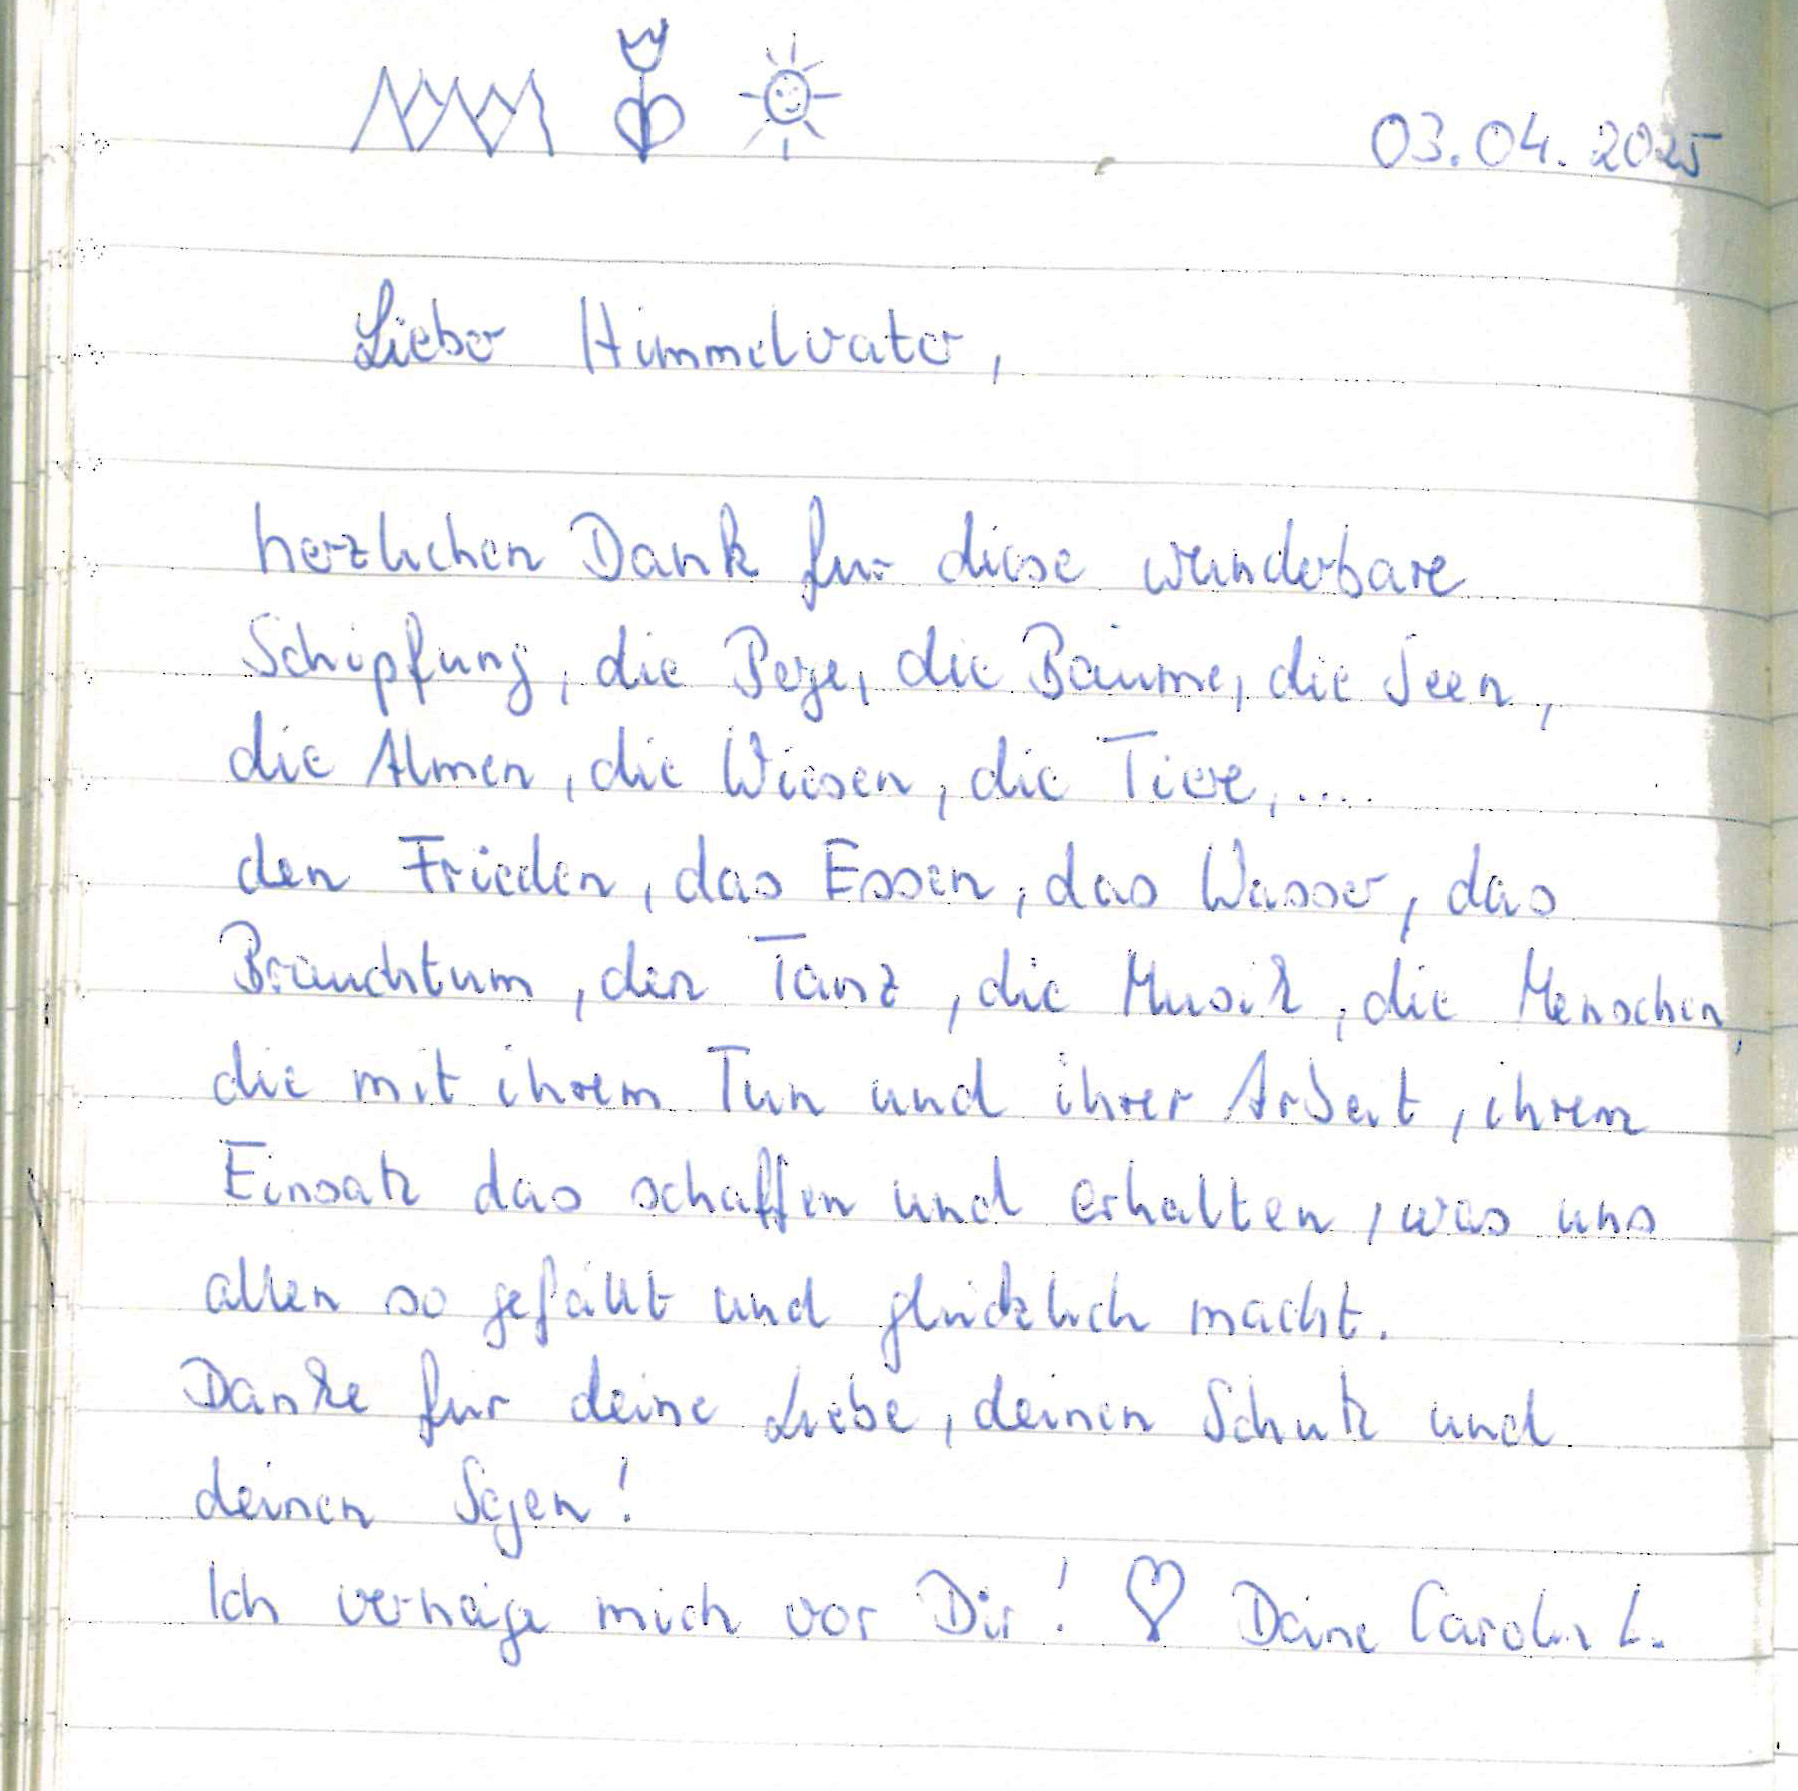 03.04.2025
Lieber Himmelvater,
herzlichen Dank für diese wunderbare
Schöpfung, die Berge, die Bäume, die Seen,
die Almen, die Wiesen, die Tiere, ....
den Frieden, das Essen, das Wasser, das
Brauchtum, den Tanz, die Musik, die Menschen,
die mit ihrem Tun und ihrer Arbeit, ihrem
Einsatz das schaffen und erhalten, was uns
allen so gefällt und glücklich macht.
Danke für deine Liebe, deinen Schutz und
deinen Segen!
Ich verneige mich vor Dir! ♡ Deine Carolin L.